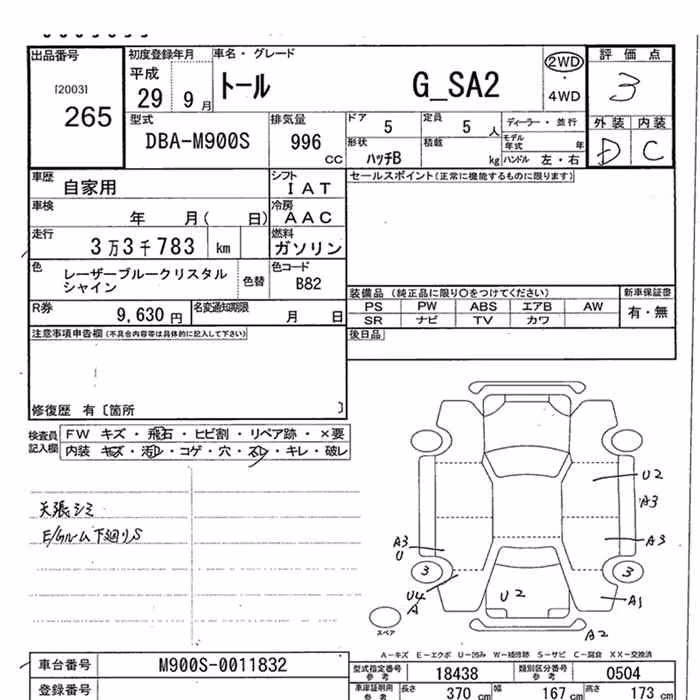 出品番号 初度登録年月 車名・グレード 評価点
[2003] 平成 トール G_SA2 2WD 3
265 29 9月 4WD
型式 排気量 ドア 5 定員 5人 ディーラー・並行 外装 内装
DBA-M900S 996 CC 形状 ハッチB 積載 kg モデル年式 年 D C
ハンドル 左・右
車歴 自家用 シフト IAT セールスポイント(正常に機能するものに限ります)
車検 年 月( 日) 冷房 AAC
走行 3万3千783 km 燃料 ガソリン
色 レーザーブルークリスタル 色替 色コード B82
シャイン
装備品 (純正品に限り○をつけてください) 新車保証書
R券 9,630円 名変通知期限 月 日 PS PW ABS エアB AW 有・無
SR ナビ TV カワ
注意事項申告欄(不具合内容等は具体的に記入して下さい) 後日品
修復歴 有〔箇所 〕
検査員記入欄 FW キズ・飛石・ヒビ割・リペア跡・×要
内装 キズ・汚レ・コゲ・穴・スレ・キレ・破レ
天張シミ
E/ルーム下廻りS
U2
A3
A3
A3
U
3
3
U4
A
U2
A1
A2
スペア
A-キズ E-エクボ U-凹み W-補修跡 S-サビ C-腐食 XX-交換済
車台番号 M900S-0011832 型式指定番号 参考 18438 類別区分番号 参考 0504
登録番号 車庫証明用 参考 長さ 370 cm 幅 167 cm 高さ 173 cm